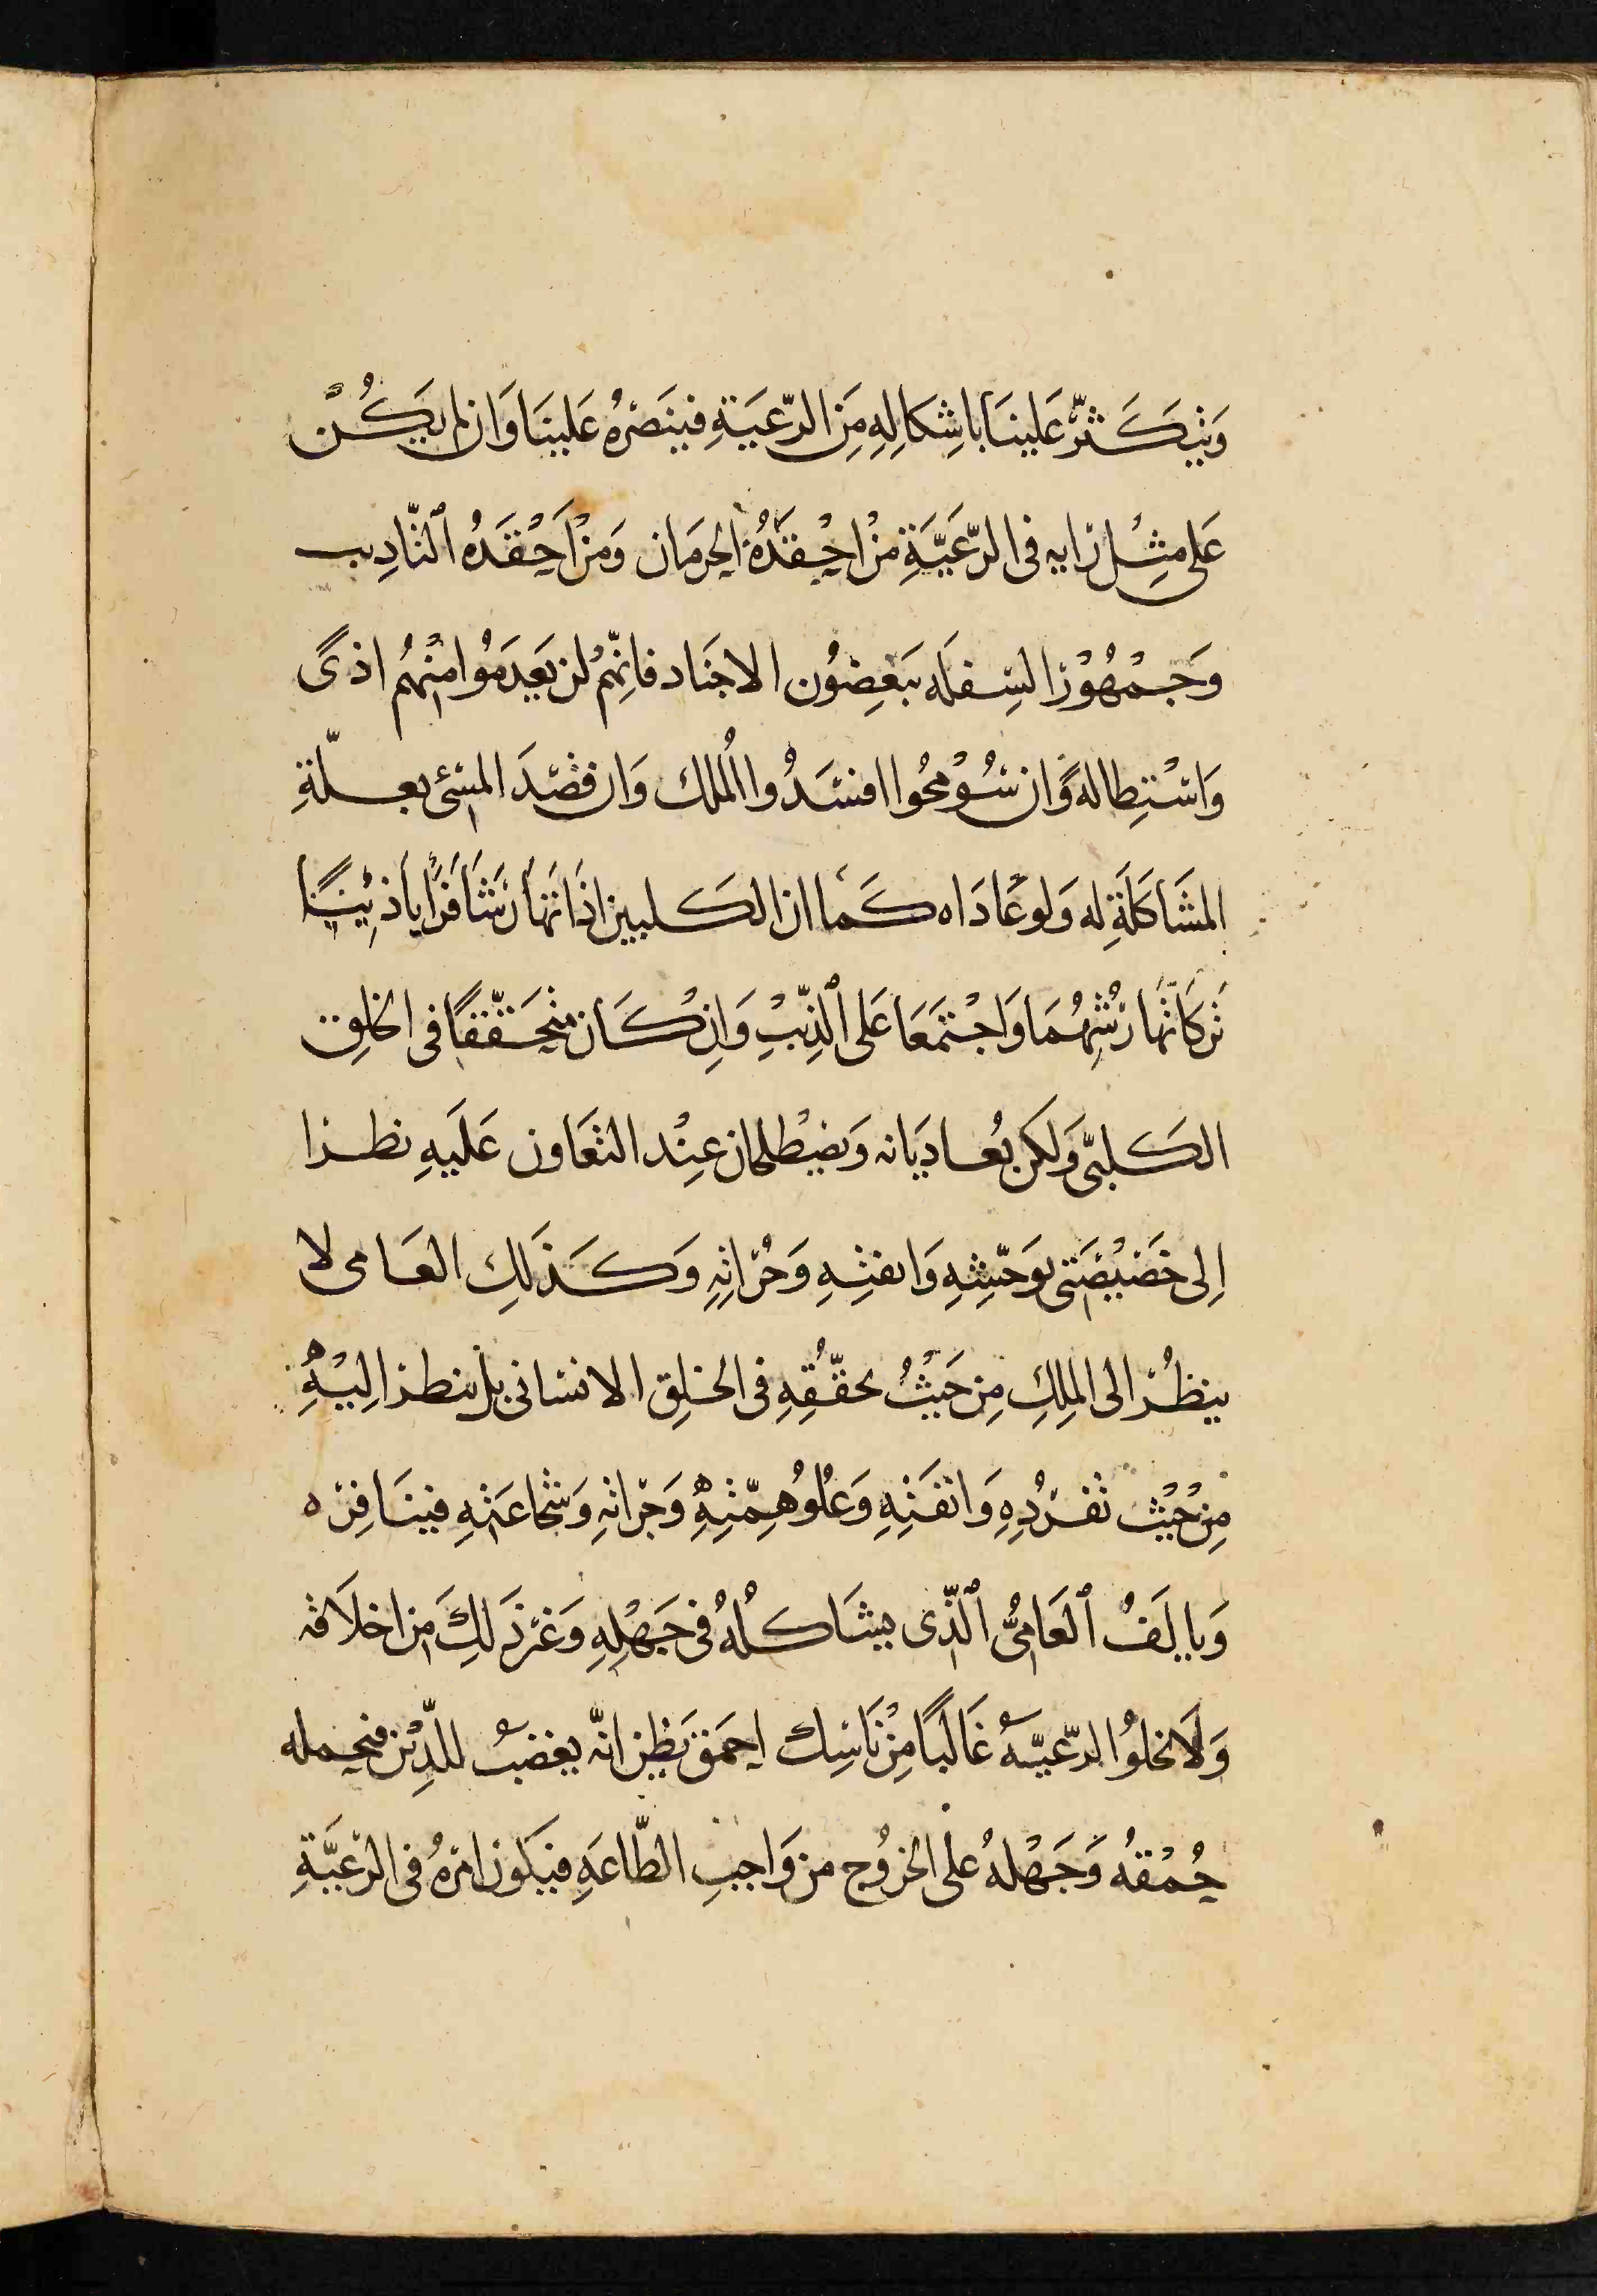 وَيَتكَثَّرُ عَلَينَا باشِكالِهِ مَن الرّعَيَةِ فينَصرُهُ عَلينَا وَان لم يَكُن
عَلى مثِل رَايه فى الرّعَيَّةِ مَنْ احْقَدُهُ الحرمَان وَمَنْ اَحْقَدُه التّادِيب
وَجمْهُوْرُ السِفلَه يَبغِضُون الاجنَاد فانِّهم لن يَعدِمُوا مِنْهُم اذىً
وَاسْتِطاله وَان سُوْمحُوا افسَدُوا المُلك وَان قصَدَ المسئ بعلّةِ
المشَاكلَةِ له وَلو عَادَاه كمَا ان الكلبين اذَا تهَارَشَا فرَايا ذئِبًا
تركا تهَارُشِهُمَا وَاجْتمَعَا عَلى الذِئبِ وَانِ كَان متحَقّقًا فى الخلِق
الكلبىّ وَلكن يُعاديَانه وَيصْطلحان عِنْد التعَاون عَلَيهِ نظرا
اِلى خَصْيصَتى توَحّشِهِ وَانفتِهِ وَجُرْاتِهِ وَكذلِك العَامى لا
ينظُر الى الملِكِ مِن حَيْثُ تحقّقُهِ فى الخلِق الانسانى بل ينظر الِيْهِ
مِن حَيْث تفرّدُهِ وَانفَتِهِ وَعُلُو هِمّتِهِ وَجرْاتهِ وَشجاعَتِهِ فينَافِرَه
وَيالَفُ العَامىُّ الذّى يشَاكلُهُ فى جَهْلِهِ وَغَيْر ذَلِكَ مِن اخلاقه
وَلا تخلوُ الرّعيّةُ غَالبًا مِنْ نَاسِك احمَق يَظن انّه يغضبُ للدِّيْن فيحمله
حُمْقُه وَجَهْلهُ على الخرُوج من وَاجبِ الطّاعَهِ فيَكون امْرهُ فى الرّعَيَّةِ